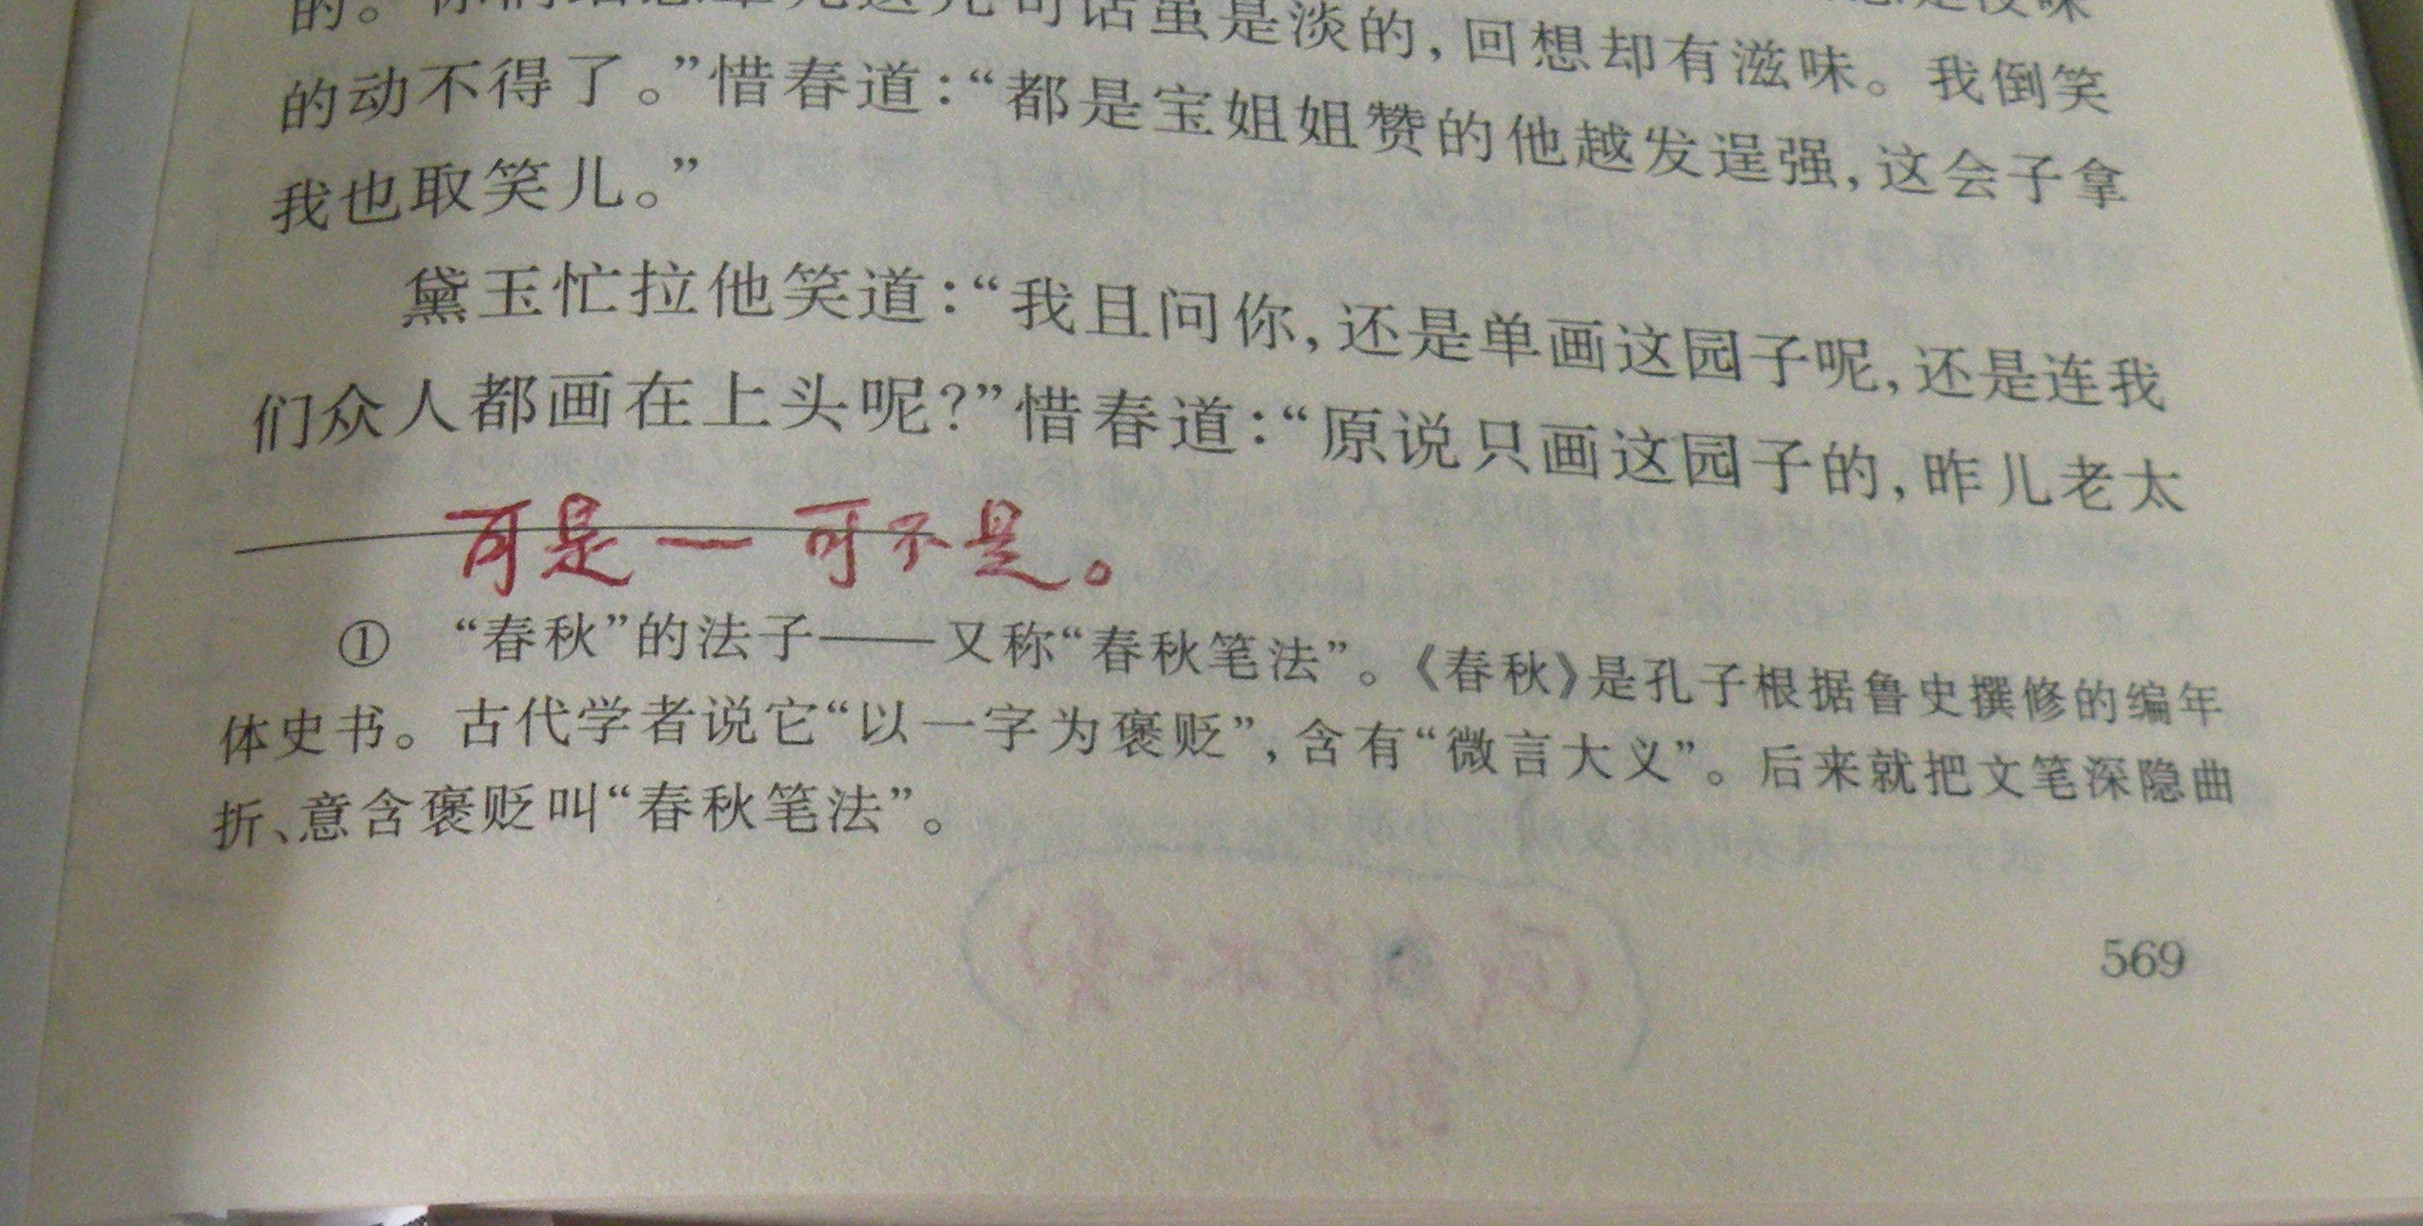 话虽是淡的,回想却有滋味。我倒笑
的动不得了。”惜春道:“都是宝姐姐赞的他越发逞强,这会子拿
我也取笑儿。”
黛玉忙拉他笑道:“我且问你,还是单画这园子呢,还是连我
们众人都画在上头呢?”惜春道:“原说只画这园子的,昨儿老太
可是一可不是。
① “春秋”的法子——又称“春秋笔法”。《春秋》是孔子根据鲁史撰修的编年
体史书。古代学者说它“以一字为褒贬”,含有“微言大义”。后来就把文笔深隐曲
折、意含褒贬叫“春秋笔法”。
569